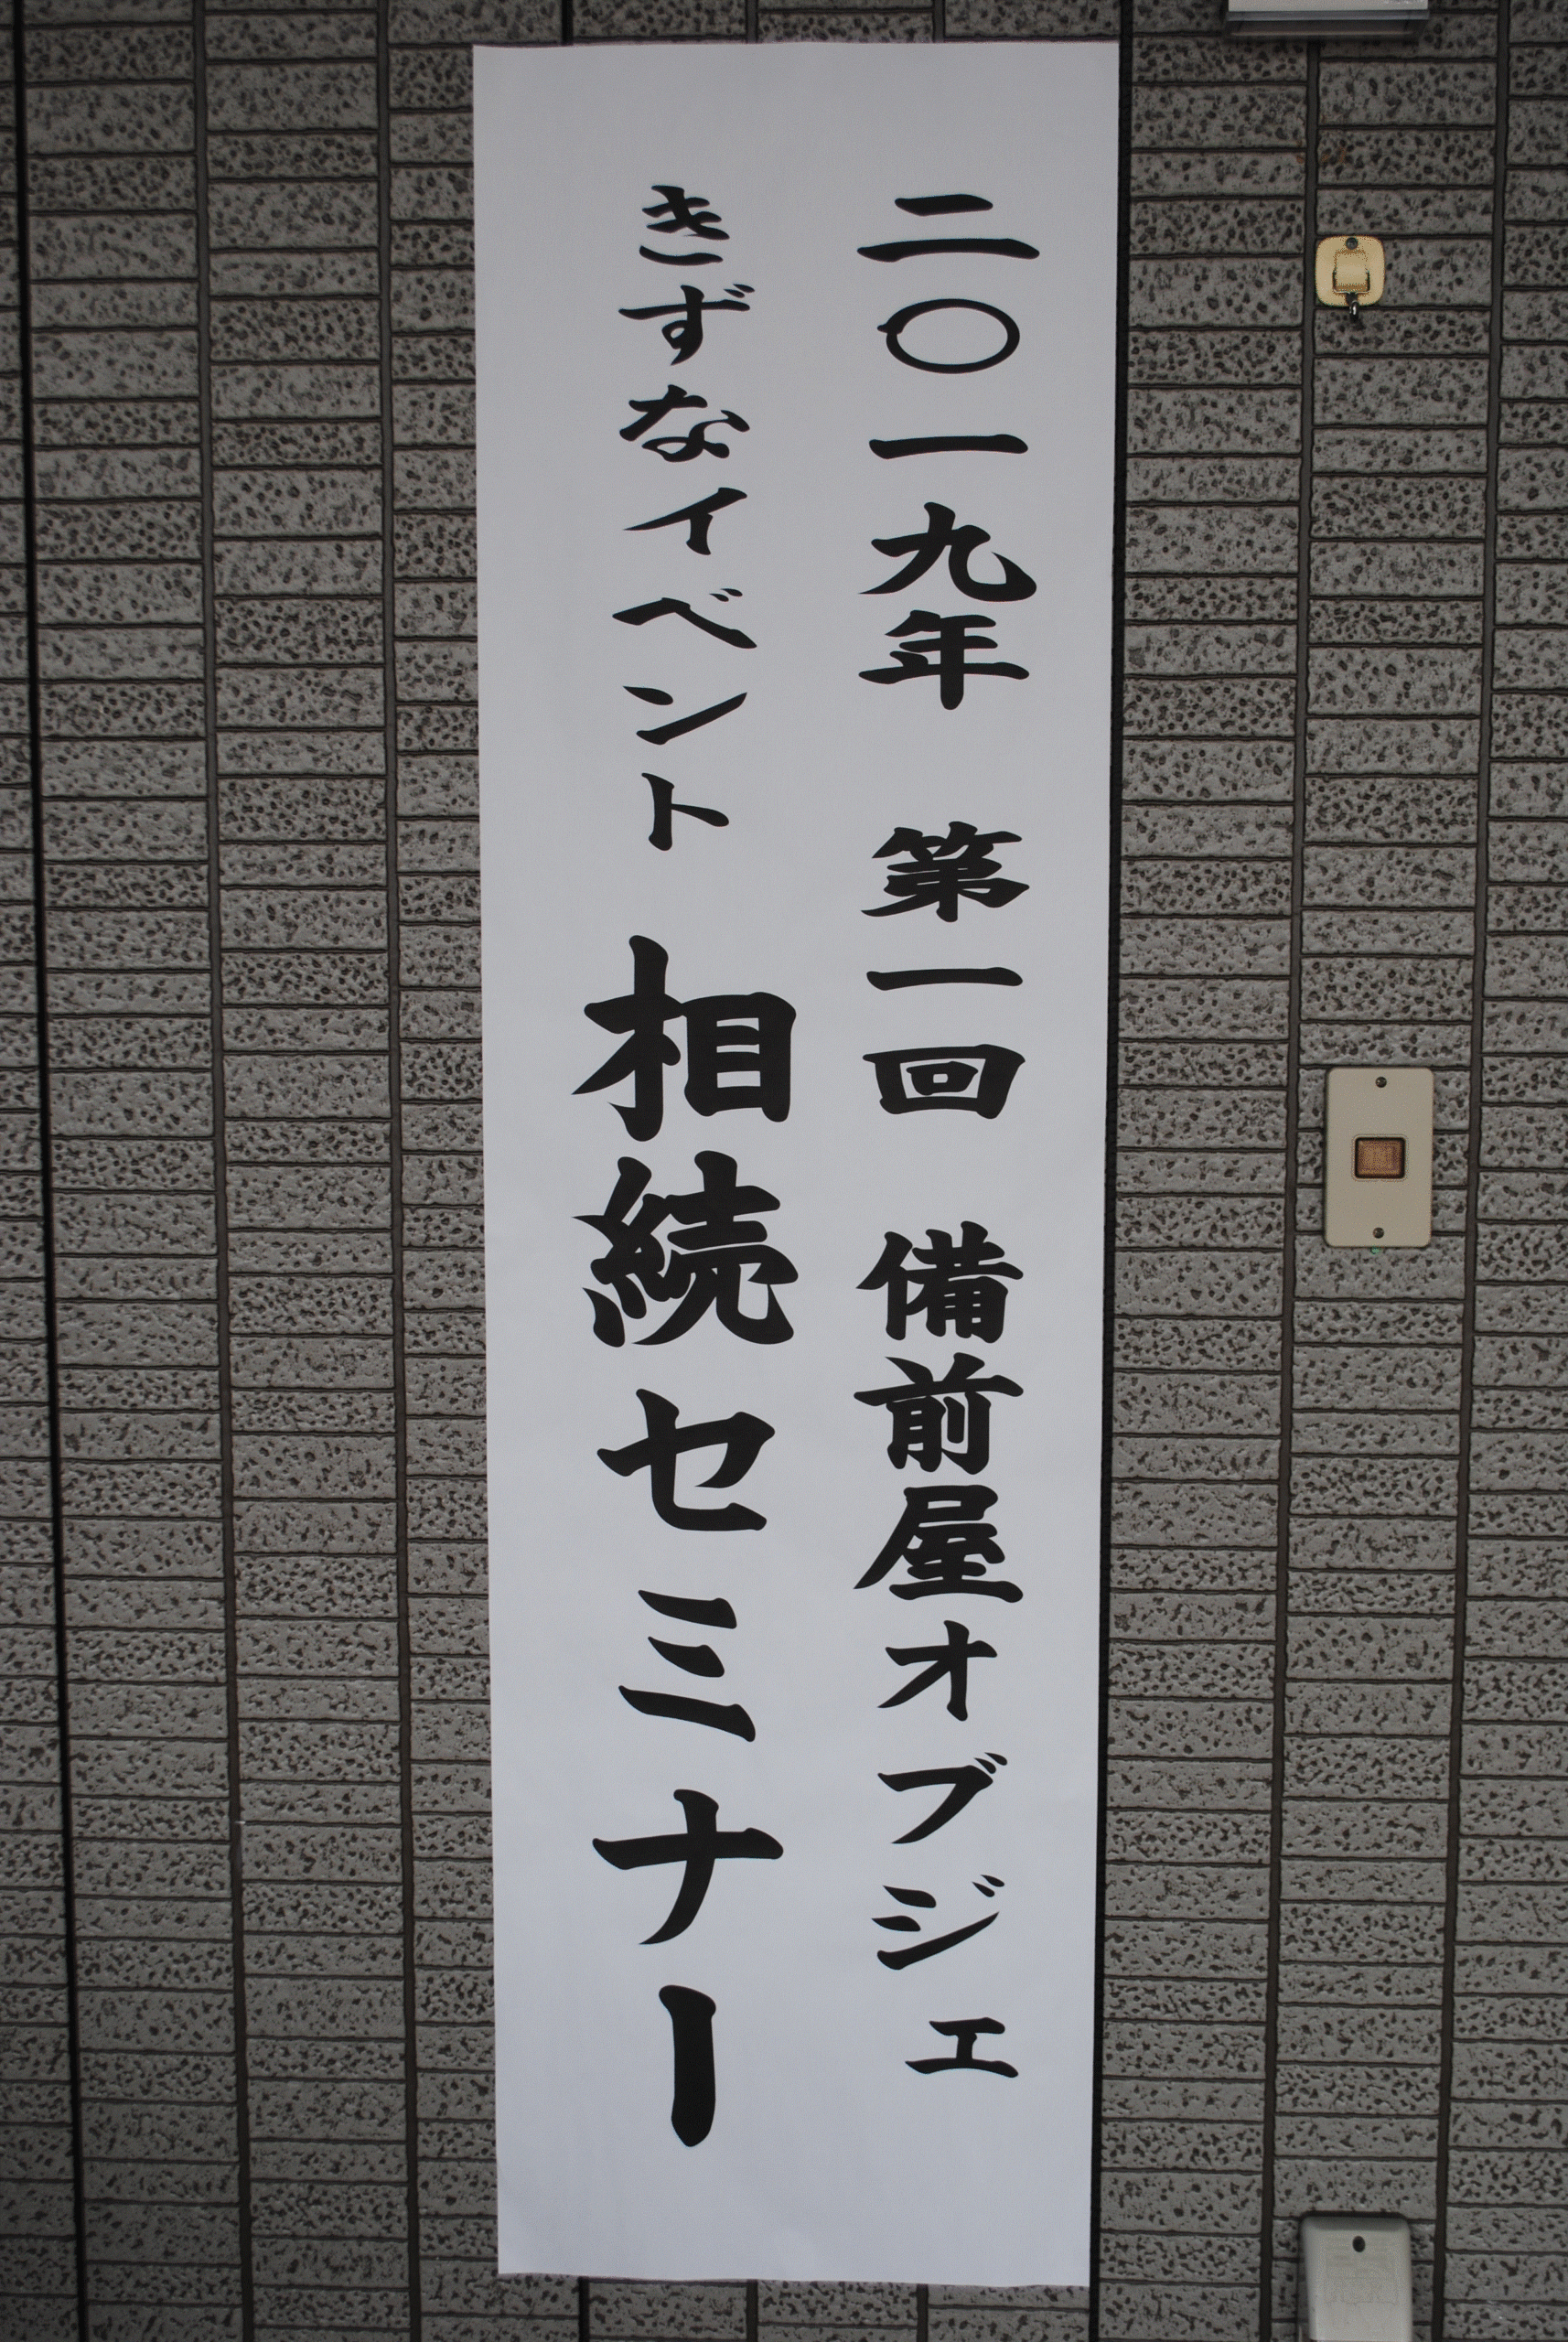 二〇一九年　第一回　備前屋オブジェ
きずなイベント　相続セミナー